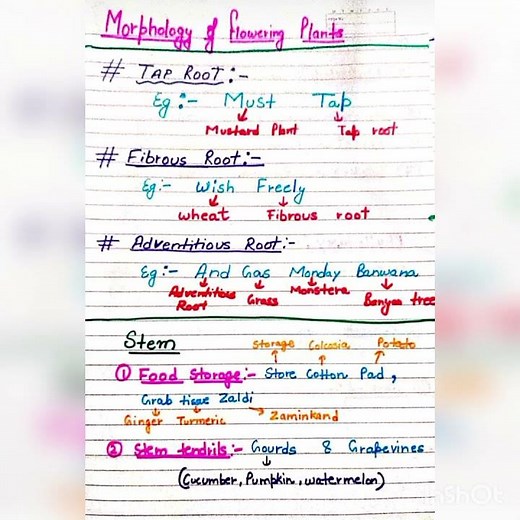 Morphology of Flowering Plants
# TAP ROOT :-
Eg :- Must Tap
Mustard Plant Tap root
# Fibrous Root :-
Eg :- Wish Freely
wheat Fibrous root
# Adventitious Root :-
Eg :- And Gas Monday Banwana
Adventitious Root Grass Monstera Banyan tree
Stem
Storage Colcasia Potato
① Food Storage :- Store Cotton Pad ,
Grab tisse Zaldi
Ginger Turmeric Zaminkand
② Stem tendrils :- Gourds & Grapevines
(Cucumber, Pumpkin, watermelon)
InShOt